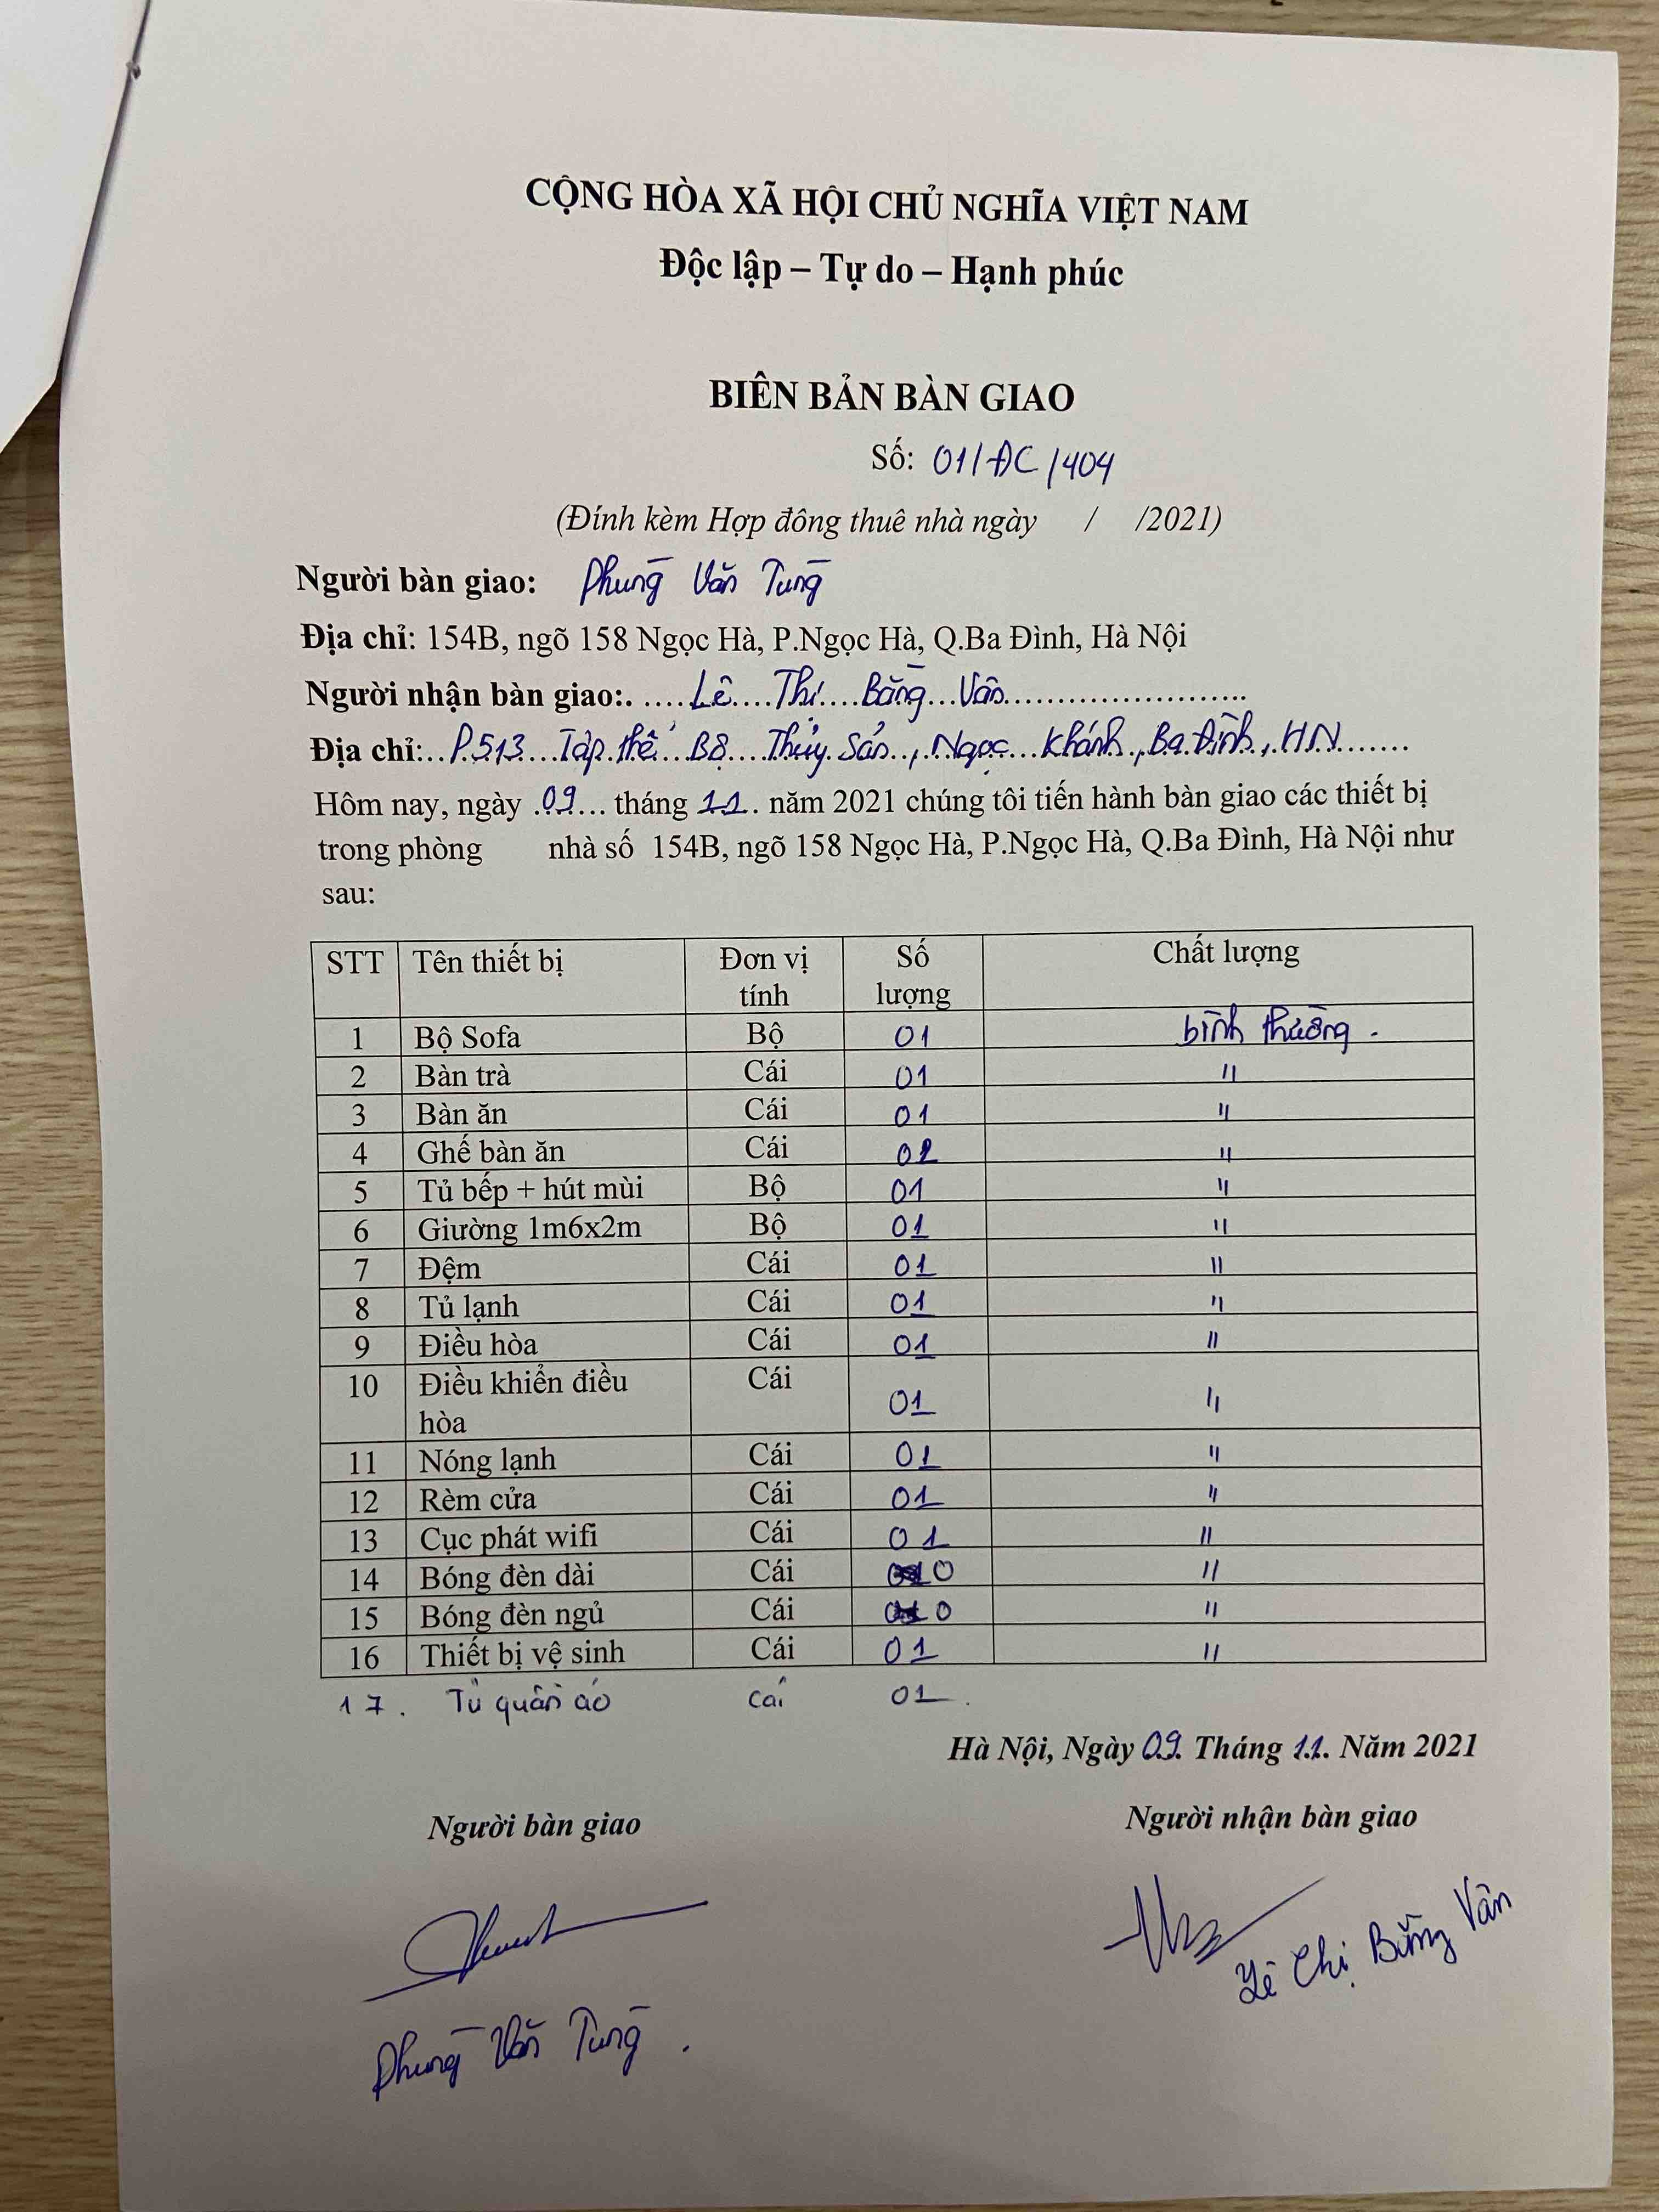 CỘNG HÒA XÃ HỘI CHỦ NGHĨA VIỆT NAM
Độc lập – Tự do – Hạnh phúc
BIÊN BẢN BÀN GIAO
Số: 01/ĐC/404
(Đính kèm Hợp đông thuê nhà ngày / /2021)
Người bàn giao: Phùng Văn Tùng
Địa chỉ: 154B, ngõ 158 Ngọc Hà, P.Ngọc Hà, Q.Ba Đình, Hà Nội
Người nhận bàn giao:. .....Lê....Thị....Bằng...Vân.......................
Địa chỉ:...P.513....Tập.thể...B8....Thủy.Sản..,.Ngọc...Khánh.,Ba.Đình.,.HN.......
Hôm nay, ngày .09... tháng 11. năm 2021 chúng tôi tiến hành bàn giao các thiết bị
trong phòng nhà số 154B, ngõ 158 Ngọc Hà, P.Ngọc Hà, Q.Ba Đình, Hà Nội như
sau:
STT Tên thiết bị Đơn vị tính Số lượng Chất lượng
1 Bộ Sofa Bộ 01 bình thường.
2 Bàn trà Cái 01 "
3 Bàn ăn Cái 01 "
4 Ghế bàn ăn Cái 02 "
5 Tủ bếp + hút mùi Bộ 01 "
6 Giường 1m6x2m Bộ 01 "
7 Đệm Cái 01 "
8 Tủ lạnh Cái 01 "
9 Điều hòa Cái 01 "
10 Điều khiển điều hòa Cái 01 "
11 Nóng lạnh Cái 01 "
12 Rèm cửa Cái 01 "
13 Cục phát wifi Cái 01 "
14 Bóng đèn dài Cái 0 "
15 Bóng đèn ngủ Cái 0 "
16 Thiết bị vệ sinh Cái 01 "
17. Tủ quần áo cái 01.
Hà Nội, Ngày 09. Tháng 11. Năm 2021
Người bàn giao Người nhận bàn giao
Lê Thị Bằng Vân
Phùng Văn Tùng.